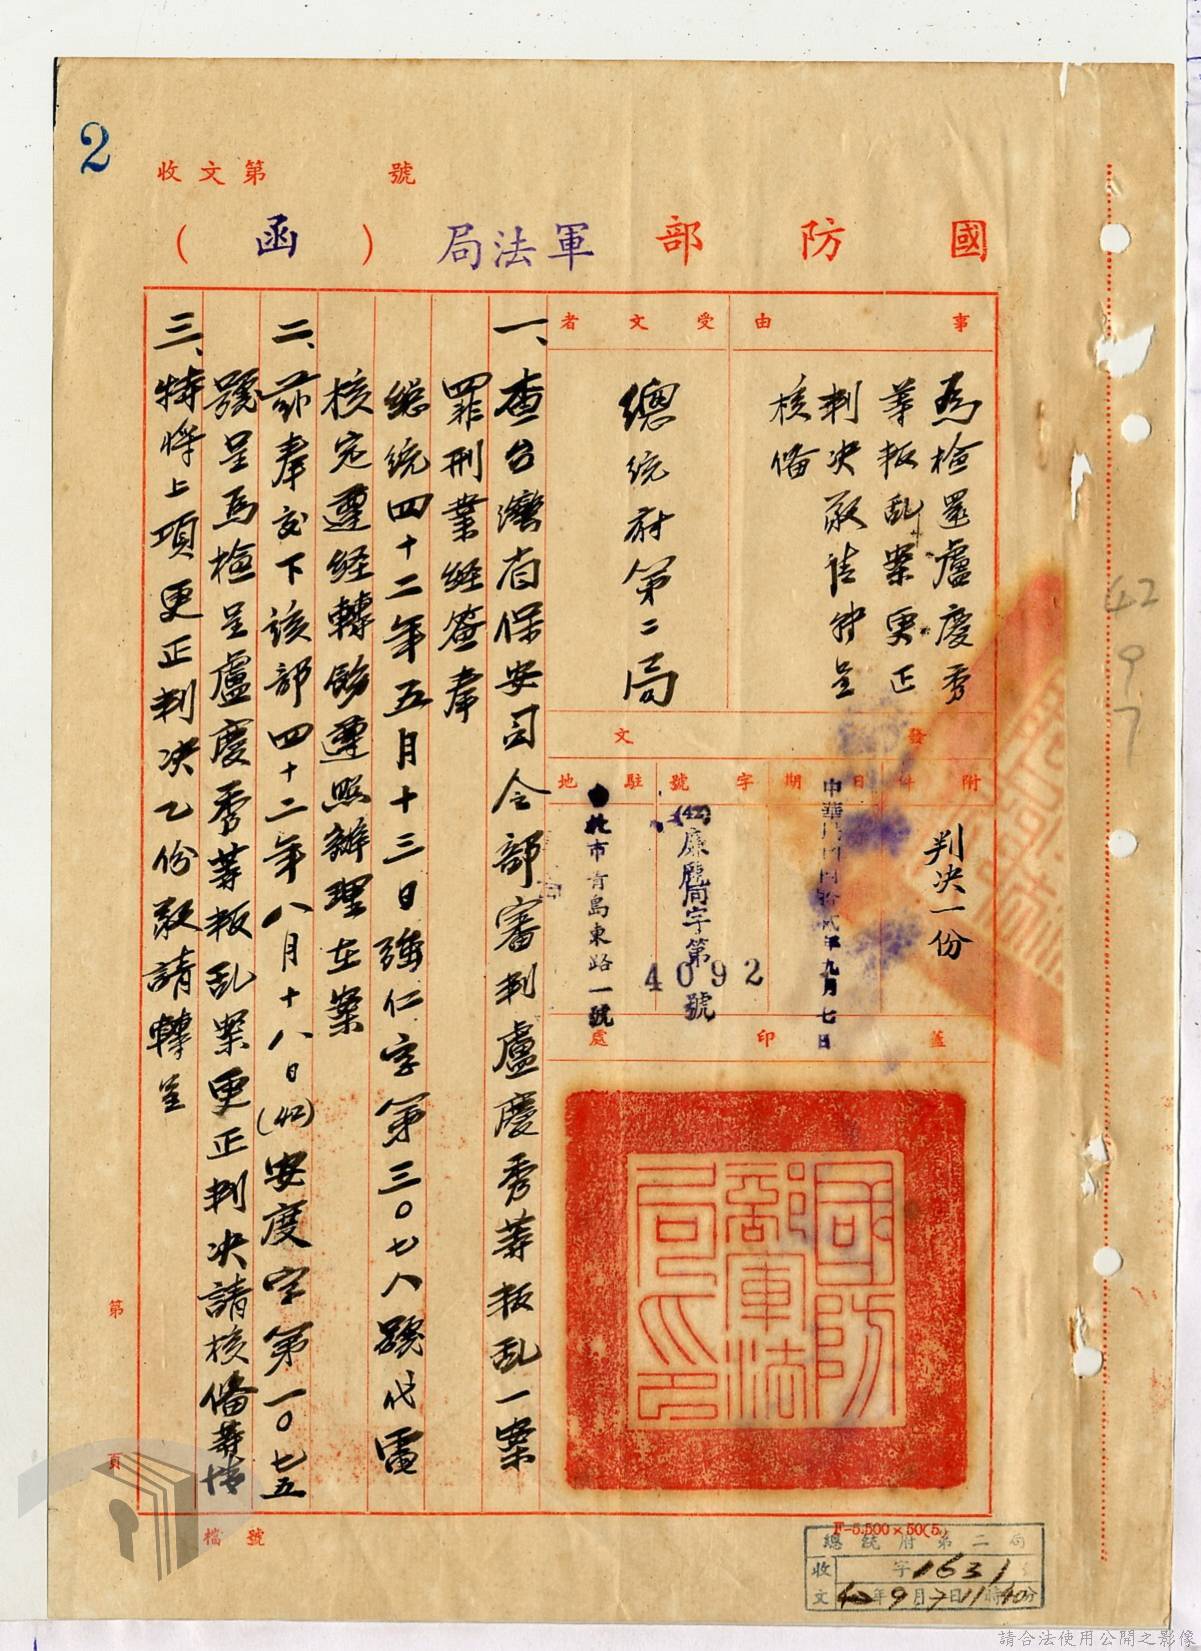 2
收文第 號
國防部軍法局(函)
事由
為檢還盧慶秀
等叛乱案更正
判决敬請轉呈
核備
受文者
總統府第二局
發文
附件
判决一份
日期
中華民國四十貳年九月七日
字號
(42)廉龐局字第4092號
駐地
台北市青島東路一號
蓋印處
國防部軍法局印
一、查台灣省保安司令部審判盧慶秀等叛乱一案
罪刑業經簽奉
總統四十二年五月十三日強仁字第三〇七八號代電
核定遵經轉飭遵照辦理在案
二、茲奉交下該部四十二年八月十八日(42)安度字第一〇七五
號呈為檢呈盧慶秀等叛乱案更正判决請核備等情
三、特將上項更正判决乙份敬請轉呈
第 頁
檔號
F-5.500×50(5.
總統府第二局
收文 字1631
42年9月7日11時40分
42
9
7
請合法使用公開之影像